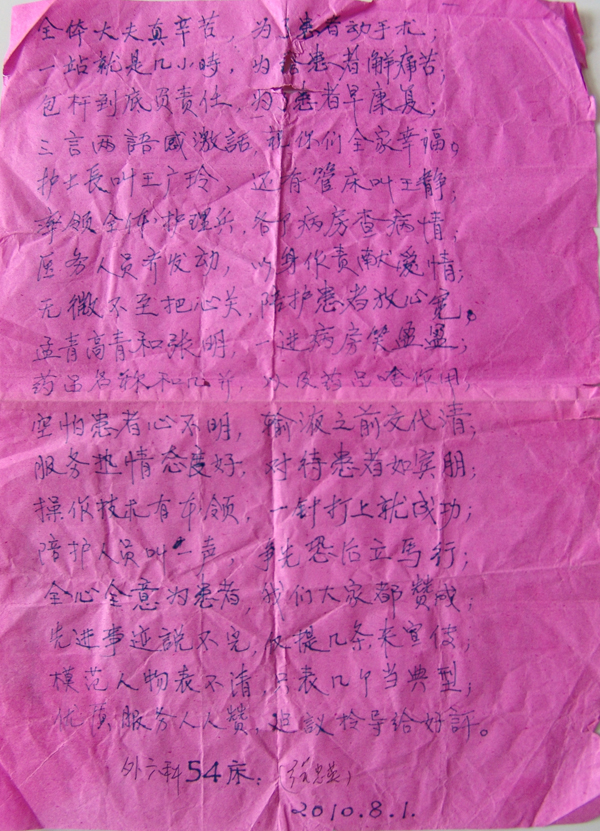 全体大夫真辛苦，为患者动手术；
一站就是几小時，为患者解痛苦；
包杆到底负责任，为患者早康复；
三言两語感激話，祝你们全家幸福。
护士長叫王广玲，还有管床叫王静；
率领全体护理兵，各个病房查病情；
医务人员齐发动，以身作责献爱情；
无微不至把心关，陪护患者放心宽。
孟青高青和张明，一进病房笑盈盈；
药品名称和，以及药品啥作用；
空怕患者心不明，输液之前交代清；
服务热情态度好，对待患者如宾朋；
操作技术有本领，一针打上就成功；
陪护人员叫一声，争先恐后立馬行；
全心全意为患者，我们大家都赞成；
先进事迹説不完，仅提几条来宣传；
模范人物表不清，只表几个当典型；
优质服务人人赞，建議领导给好評。
外六科54床：
2010.8.1.